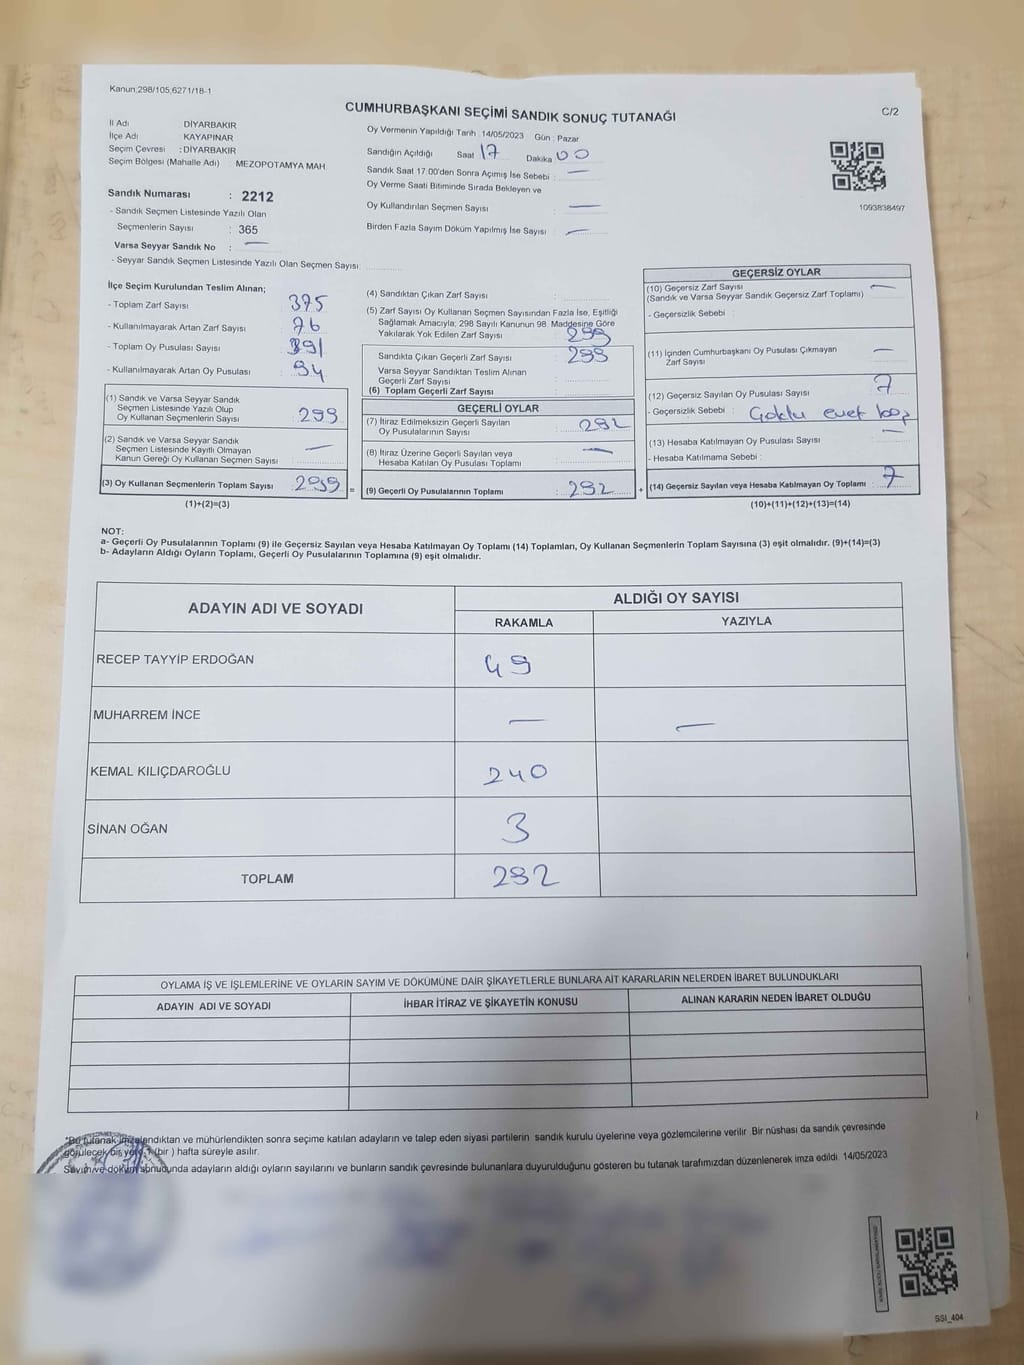 Kanun,298/105,6271/18-1
CUMHURBAŞKANI SEÇİMİ SANDIK SONUÇ TUTANAĞI
C/2
İl Adı DİYARBAKIR
İlçe Adı KAYAPINAR
Seçim Çevresi : DİYARBAKIR
Seçim Bölgesi (Mahalle Adı) : MEZOPOTAMYA MAH.
Sandık Numarası : 2212
- Sandık Seçmen Listesinde Yazılı Olan
Seçmenlerin Sayısı : 365
Varsa Seyyar Sandık No : —
- Seyyar Sandık Seçmen Listesinde Yazılı Olan Seçmen Sayısı:
Oy Vermenin Yapıldığı Tarih : 14/05/2023 Gün : Pazar
Sandığın Açıldığı Saat 17 Dakika 00
Sandık Saat 17.00'den Sonra Açımış İse Sebebi : —
Oy Verme Saati Bitiminde Sırada Bekleyen ve
Oy Kullandırılan Seçmen Sayısı : —
Birden Fazla Sayım Döküm Yapılmış İse Sayısı : —
1093838497
İlçe Seçim Kurulundan Teslim Alınan;
- Toplam Zarf Sayısı : 375
- Kullanılmayarak Artan Zarf Sayısı : 76
- Toplam Oy Pusulası Sayısı : 391
- Kullanılmayarak Artan Oy Pusulası : 94
(1) Sandık ve Varsa Seyyar Sandık
Seçmen Listesinde Yazılı Olup
Oy Kullanan Seçmenlerin Sayısı : 299
(2) Sandık ve Varsa Seyyar Sandık
Seçmen Listesinde Kayıtlı Olmayan
Kanun Gereği Oy Kullanan Seçmen Sayısı : —
(3) Oy Kullanan Seçmenlerin Toplam Sayısı : 299 =
(1)+(2)=(3)
(4) Sandıktan Çıkan Zarf Sayısı :
(5) Zarf Sayısı Oy Kullanan Seçmen Sayısından Fazla İse, Eşitliği
Sağlamak Amacıyla; 298 Sayılı Kanunun 98. Maddesine Göre
Yakılarak Yok Edilen Zarf Sayısı : 299
Sandıkta Çıkan Geçerli Zarf Sayısı : 299
Varsa Seyyar Sandıktan Teslim Alınan
Geçerli Zarf Sayısı :
(6) Toplam Geçerli Zarf Sayısı :
GEÇERLİ OYLAR
(7) İtiraz Edilmeksizin Geçerli Sayılan
Oy Pusulalarının Sayısı : 292
(8) İtiraz Üzerine Geçerli Sayılan veya
Hesaba Katılan Oy Pusulası Toplamı : —
(9) Geçerli Oy Pusulalarının Toplamı : 292 +
GEÇERSİZ OYLAR
(10) Geçersiz Zarf Sayısı : —
(Sandık ve Varsa Seyyar Sandık Geçersiz Zarf Toplamı)
- Geçersizlik Sebebi :
(11) İçinden Cumhurbaşkanı Oy Pusulası Çıkmayan
Zarf Sayısı : —
(12) Geçersiz Sayılan Oy Pusulası Sayısı : 7
- Geçersizlik Sebebi : evet
(13) Hesaba Katılmayan Oy Pusulası Sayısı : —
- Hesaba Katılmama Sebebi :
(14) Geçersiz Sayılan veya Hesaba Katılmayan Oy Toplamı : 7
(10)+(11)+(12)+(13)=(14)
NOT:
a- Geçerli Oy Pusulalarının Toplamı (9) ile Geçersiz Sayılan veya Hesaba Katılmayan Oy Toplamı (14) Toplamları, Oy Kullanan Seçmenlerin Toplam Sayısına (3) eşit olmalıdır. (9)+(14)=(3)
b- Adayların Aldığı Oyların Toplamı, Geçerli Oy Pusulalarının Toplamına (9) eşit olmalıdır.
ADAYIN ADI VE SOYADI ALDIĞI OY SAYISI
RAKAMLA YAZIYLA
RECEP TAYYİP ERDOĞAN 49
MUHARREM İNCE — —
KEMAL KILIÇDAROĞLU 240
SİNAN OĞAN 3
TOPLAM 292
OYLAMA İŞ VE İŞLEMLERİNE VE OYLARIN SAYIM VE DÖKÜMÜNE DAİR ŞİKAYETLERLE BUNLARA AİT KARARLARIN NELERDEN İBARET BULUNDUKLARI
ADAYIN ADI VE SOYADI İHBAR İTİRAZ VE ŞİKAYETİN KONUSU ALINAN KARARIN NEDEN İBARET OLDUĞU
*Bu tutanak imzalandıktan ve mühürlendikten sonra seçime katılan adayların ve talep eden siyasi partilerin sandık kurulu üyelerine veya gözlemcilerine verilir. Bir nüshası da sandık çevresinde
görülecek bir yere 1 (bir ) hafta süreyle asılır.
Sayım ve döküm sonucunda adayların aldığı oyların sayılarını ve bunların sandık çevresinde bulunanlara duyurulduğunu gösteren bu tutanak tarafımızdan düzenlenerek imza edildi. 14/05/2023
SSI_404